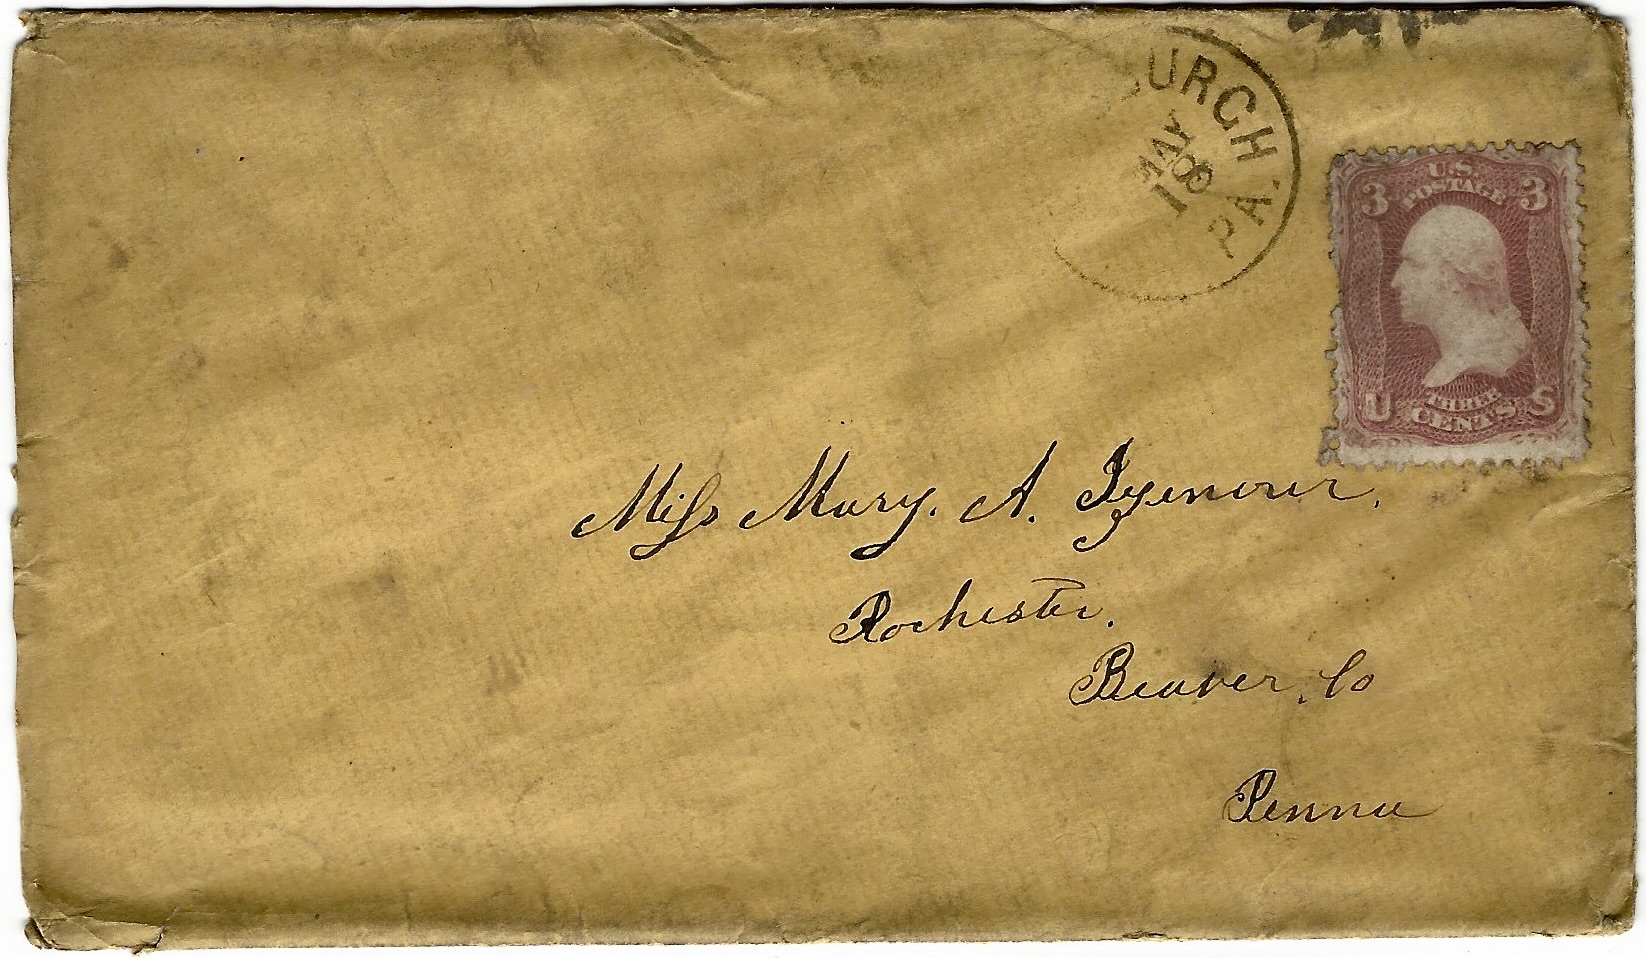 URGH PA.
MAY
18
3 U.S. 3
POSTAGE
U THREE S
CENTS
Miss Mary. A. Izenour,
Rochester.
Beaver, Co
Penna